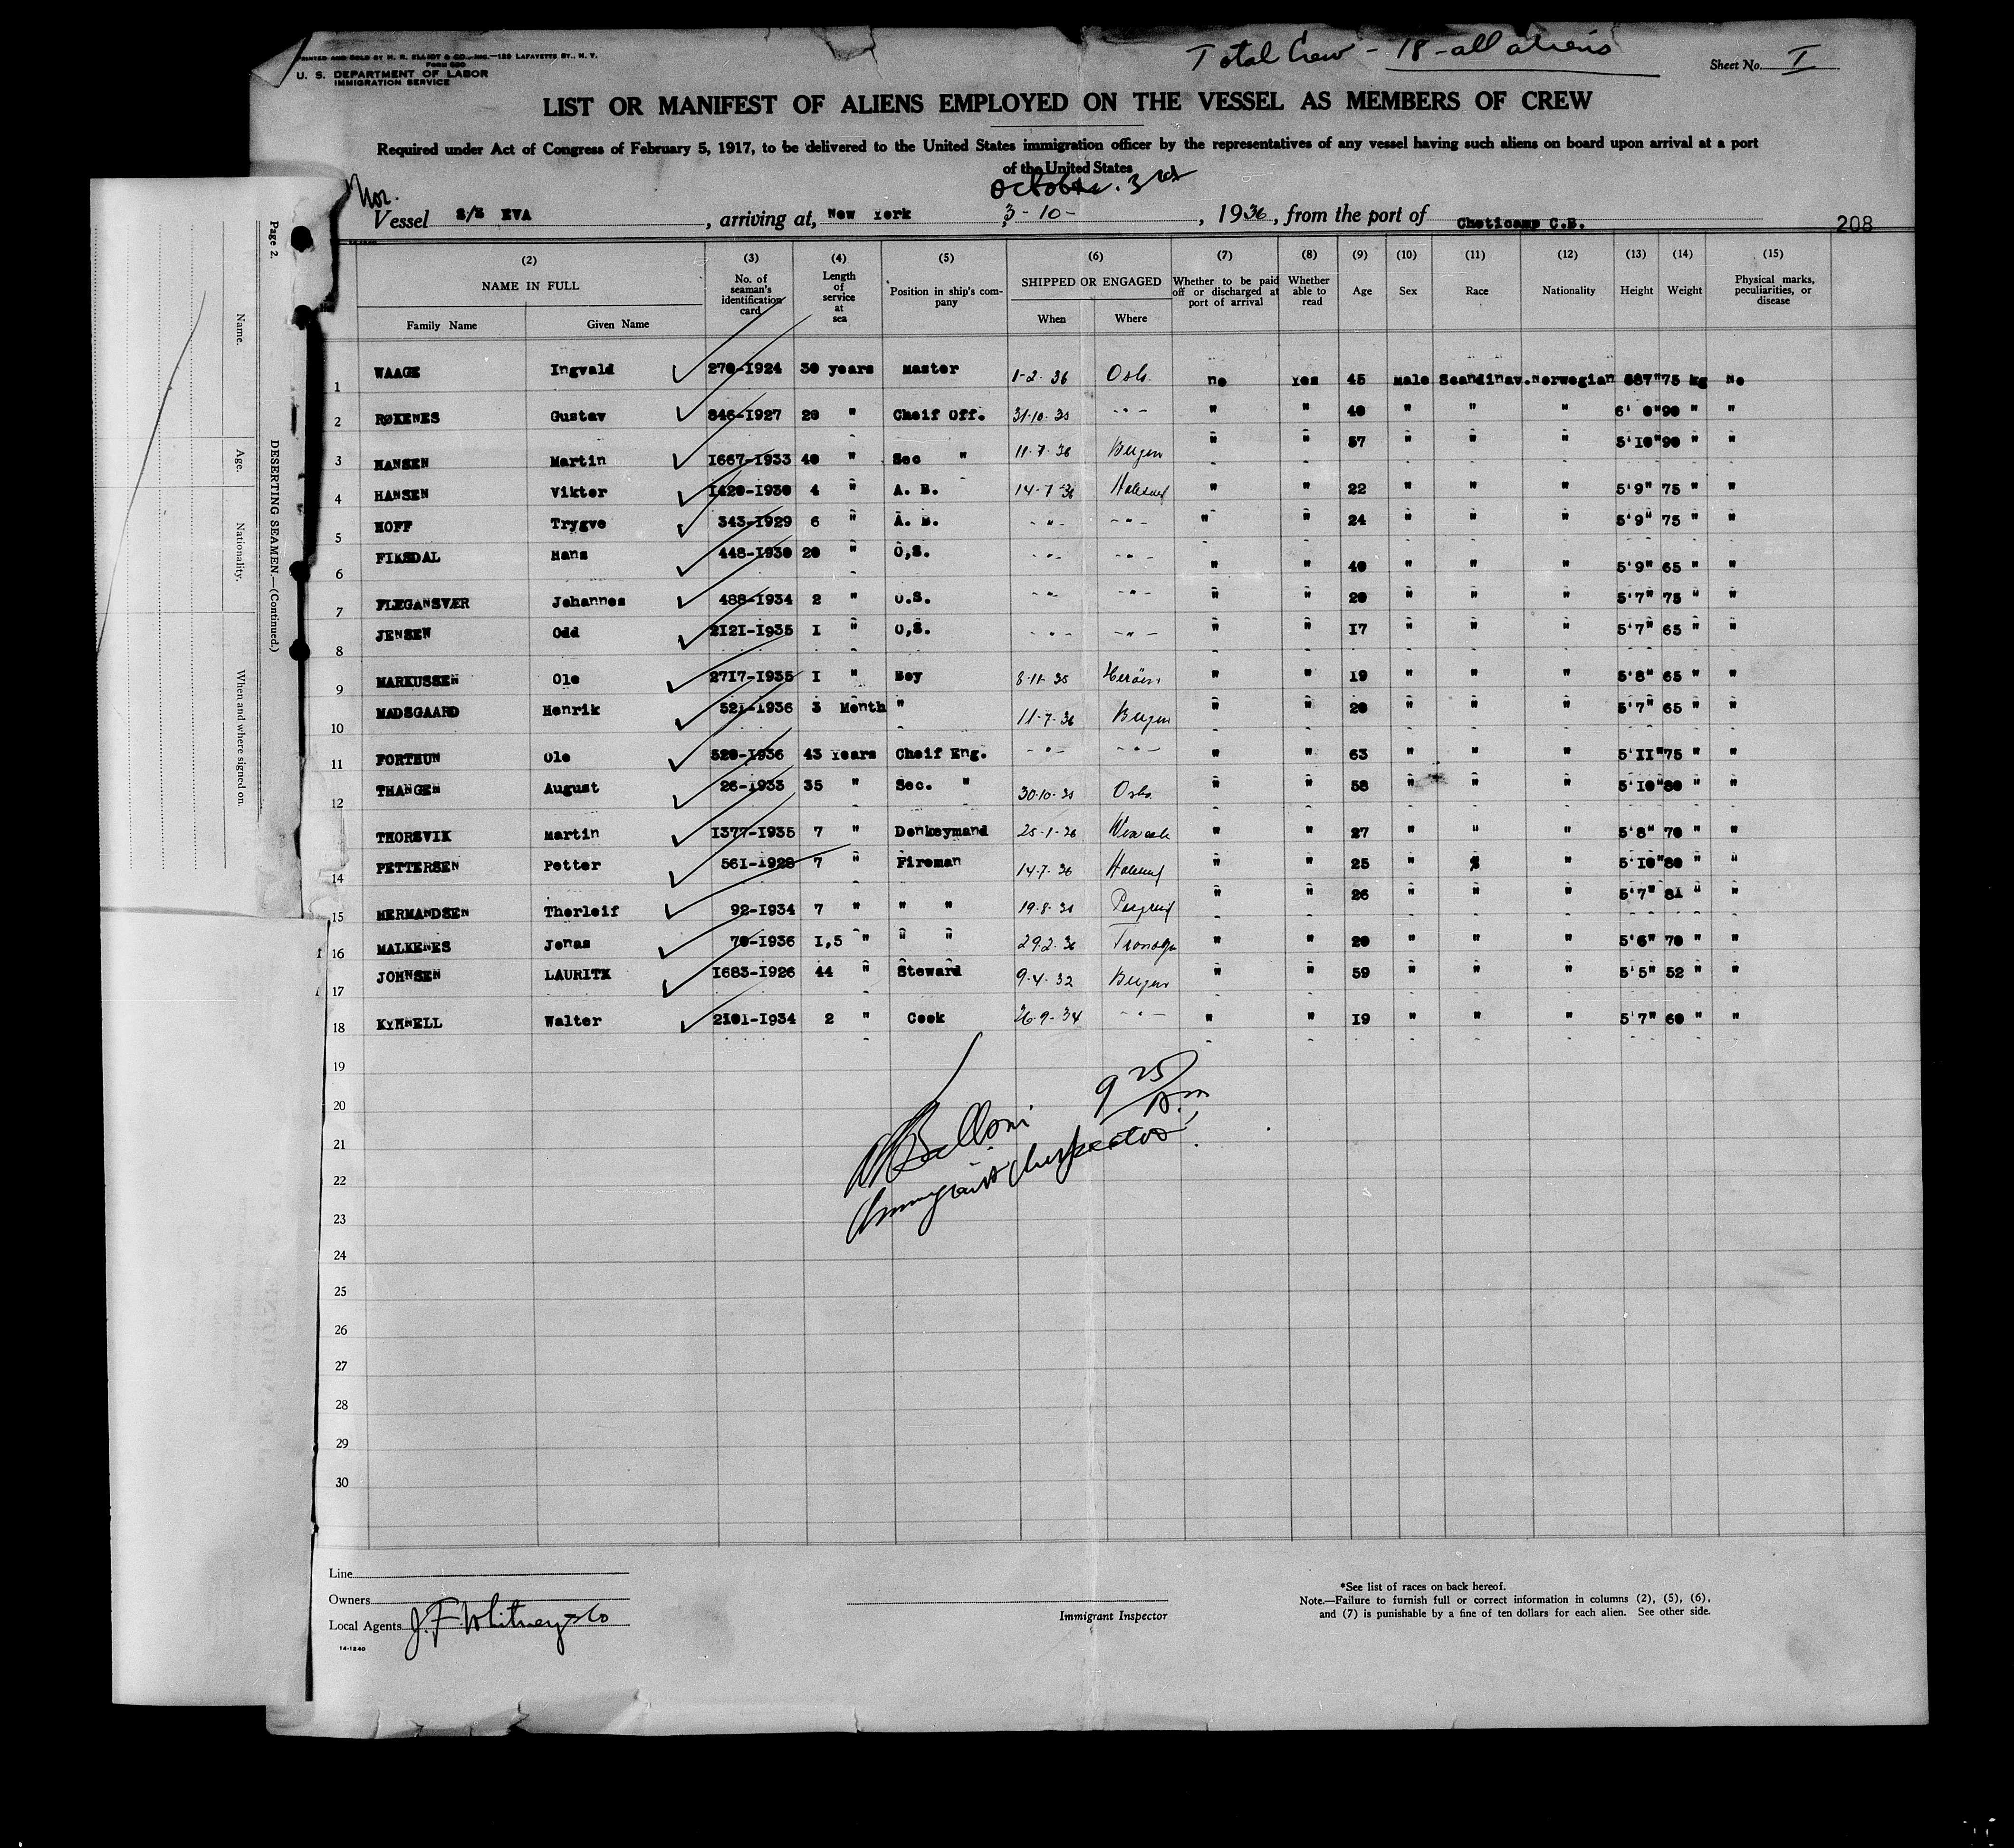 PRINTED AND SOLD BY H. R. ELLIOT & CO., INC.—129 LAFAYETTE ST., N. Y.
FORM 680
U. S. DEPARTMENT OF LABOR
IMMIGRATION SERVICE
Total Crew - 18 - all aliens
Sheet No. I
LIST OR MANIFEST OF ALIENS EMPLOYED ON THE VESSEL AS MEMBERS OF CREW
Required under Act of Congress of February 5, 1917, to be delivered to the United States immigration officer by the representatives of any vessel having such aliens on board upon arrival at a port
of the United States
October. 3rd
Nor.
Vessel S/S EVA, arriving at, New York 3-10-, 1936, from the port of Cheticamp C.B. 208
(2) (3) (4) (5) (6) (7) (8) (9) (10) (11) (12) (13) (14) (15)
NAME IN FULL No. of seaman's identification card Length of service at sea Position in ship's company SHIPPED OR ENGAGED Whether to be paid off or discharged at port of arrival Whether able to read Age Sex Race Nationality Height Weight Physical marks, peculiarities, or disease
Family Name Given Name When Where
1 WAAGE Ingvald 270-1924 30 years Master 1-2-36 Oslo. no Yes 45 Male Scandinav. Norwegian 687" 75 kg No
2 RØKENES Gustav 846-1927 20 " Cheif Off. 31-10-35 -"- " " 40 " " " 6' 0" 90 " "
3 HANSEN Martin 1667-1933 40 " Sec " 11-7-36 Bergen " " 57 " " " 5'10" 90 " "
4 HANSEN Viktor 1420-1930 4 " A. B. 14-7-36 " " 22 " " " 5'9" 75 " "
5 HOFF Trygve 343-1929 6 " A. B. -"- -"- " " 24 " " " 5'9" 75 " "
6 FIKSDAL Hans 448-1930 20 " O,S. -"- -"- " " 40 " " " 5'9" 65 " "
7 FLEGANSVÆR Johannes 488-1934 2 " O.S. -"- -"- " " 20 " " " 5'7" 75 " "
8 JENSEN Odd 2121-1935 1 " O,S. -"- -"- " " 17 " " " 5'7" 65 " "
9 MARKUSSEN Ole 2717-1935 1 " Boy 8-11-35 " " 19 " " " 5'8" 65 " "
10 MADSGAARD Henrik 521-1936 3 Month " 11-7-36 Bergen " " 20 " " " 5'7" 65 " "
11 FORTHUN Ole 520-1936 43 Years Cheif Eng. -"- -"- " " 63 " " " 5'11" 75 " "
12 THANGEN August 26-1933 35 " Sec. " 30-10-35 Oslo. " " 58 " " " 5'10" 80 " "
THORSVIK Martin 1377-1935 7 " Donkeymand 25-1-36 " " 27 " " " 5'8" 70 " "
14 PETTERSEN Petter 561-1928 7 " Fireman 14-7-36 " " 25 " " 5'10" 80 " "
15 HERMANDSEN Thorleif 92-1934 7 " " " 19-8-35 " " 26 " " " 5'7" 81 " "
16 MALKENES Jonas 70-1936 1,5 " " " 29-2-36 " " 20 " " " 5'6" 70 " "
17 JOHNSEN LAURITX 1683-1926 44 " Steward 9-4-32 Bergen " " 59 " " " 5'5" 52 " "
18 KYMNELL Walter 2101-1934 2 " Cook 26-9-34 -"- " " 19 " " " 5'7" 60 " "
19
20
21
22
23
24
25
26
27
28
29
30
9 25 A.m
Belloni
Immigrant Inspector
Line
Owners
Local Agents J. F. Whitney & Co
14-1240
Immigrant Inspector
*See list of races on back hereof.
Note.—Failure to furnish full or correct information in columns (2), (5), (6),
and (7) is punishable by a fine of ten dollars for each alien. See other side.
Page 2.
DESERTING SEAMEN.—(Continued.)
Name.
Age.
Nationality.
When and where signed on.